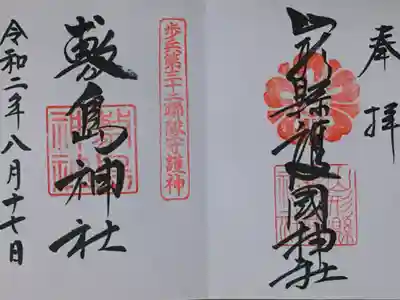 奉拝
山形縣護國神社
歩兵第三十二聯隊守護神
敷島神社
令和二年八月十七日